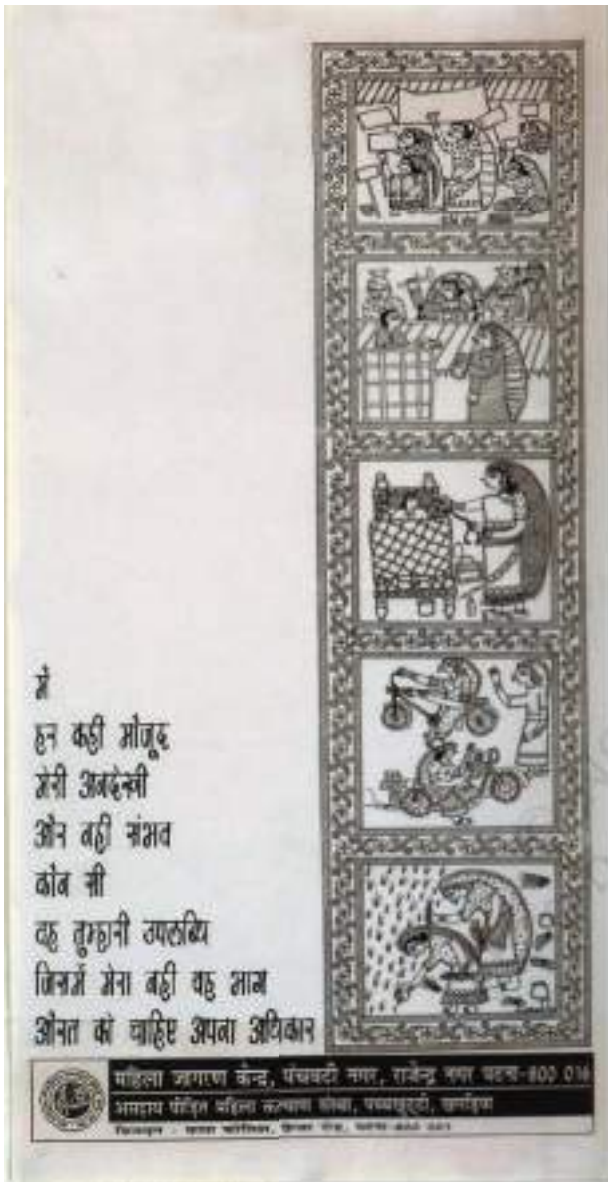 मैं
हर कहीं मौजूद
मेरी अनदेखी
और नहीं संभव
कौन सी
वह तुम्हारी उपलब्धि
जिसमें मेरा नहीं वह भाग
औरत को चाहिए अपना अधिकार
महिला जागरण केन्द्र, पंचवटी नगर, राजेन्द्र नगर पटना-800 016
पीड़ित महिला कल्याण संस्था,